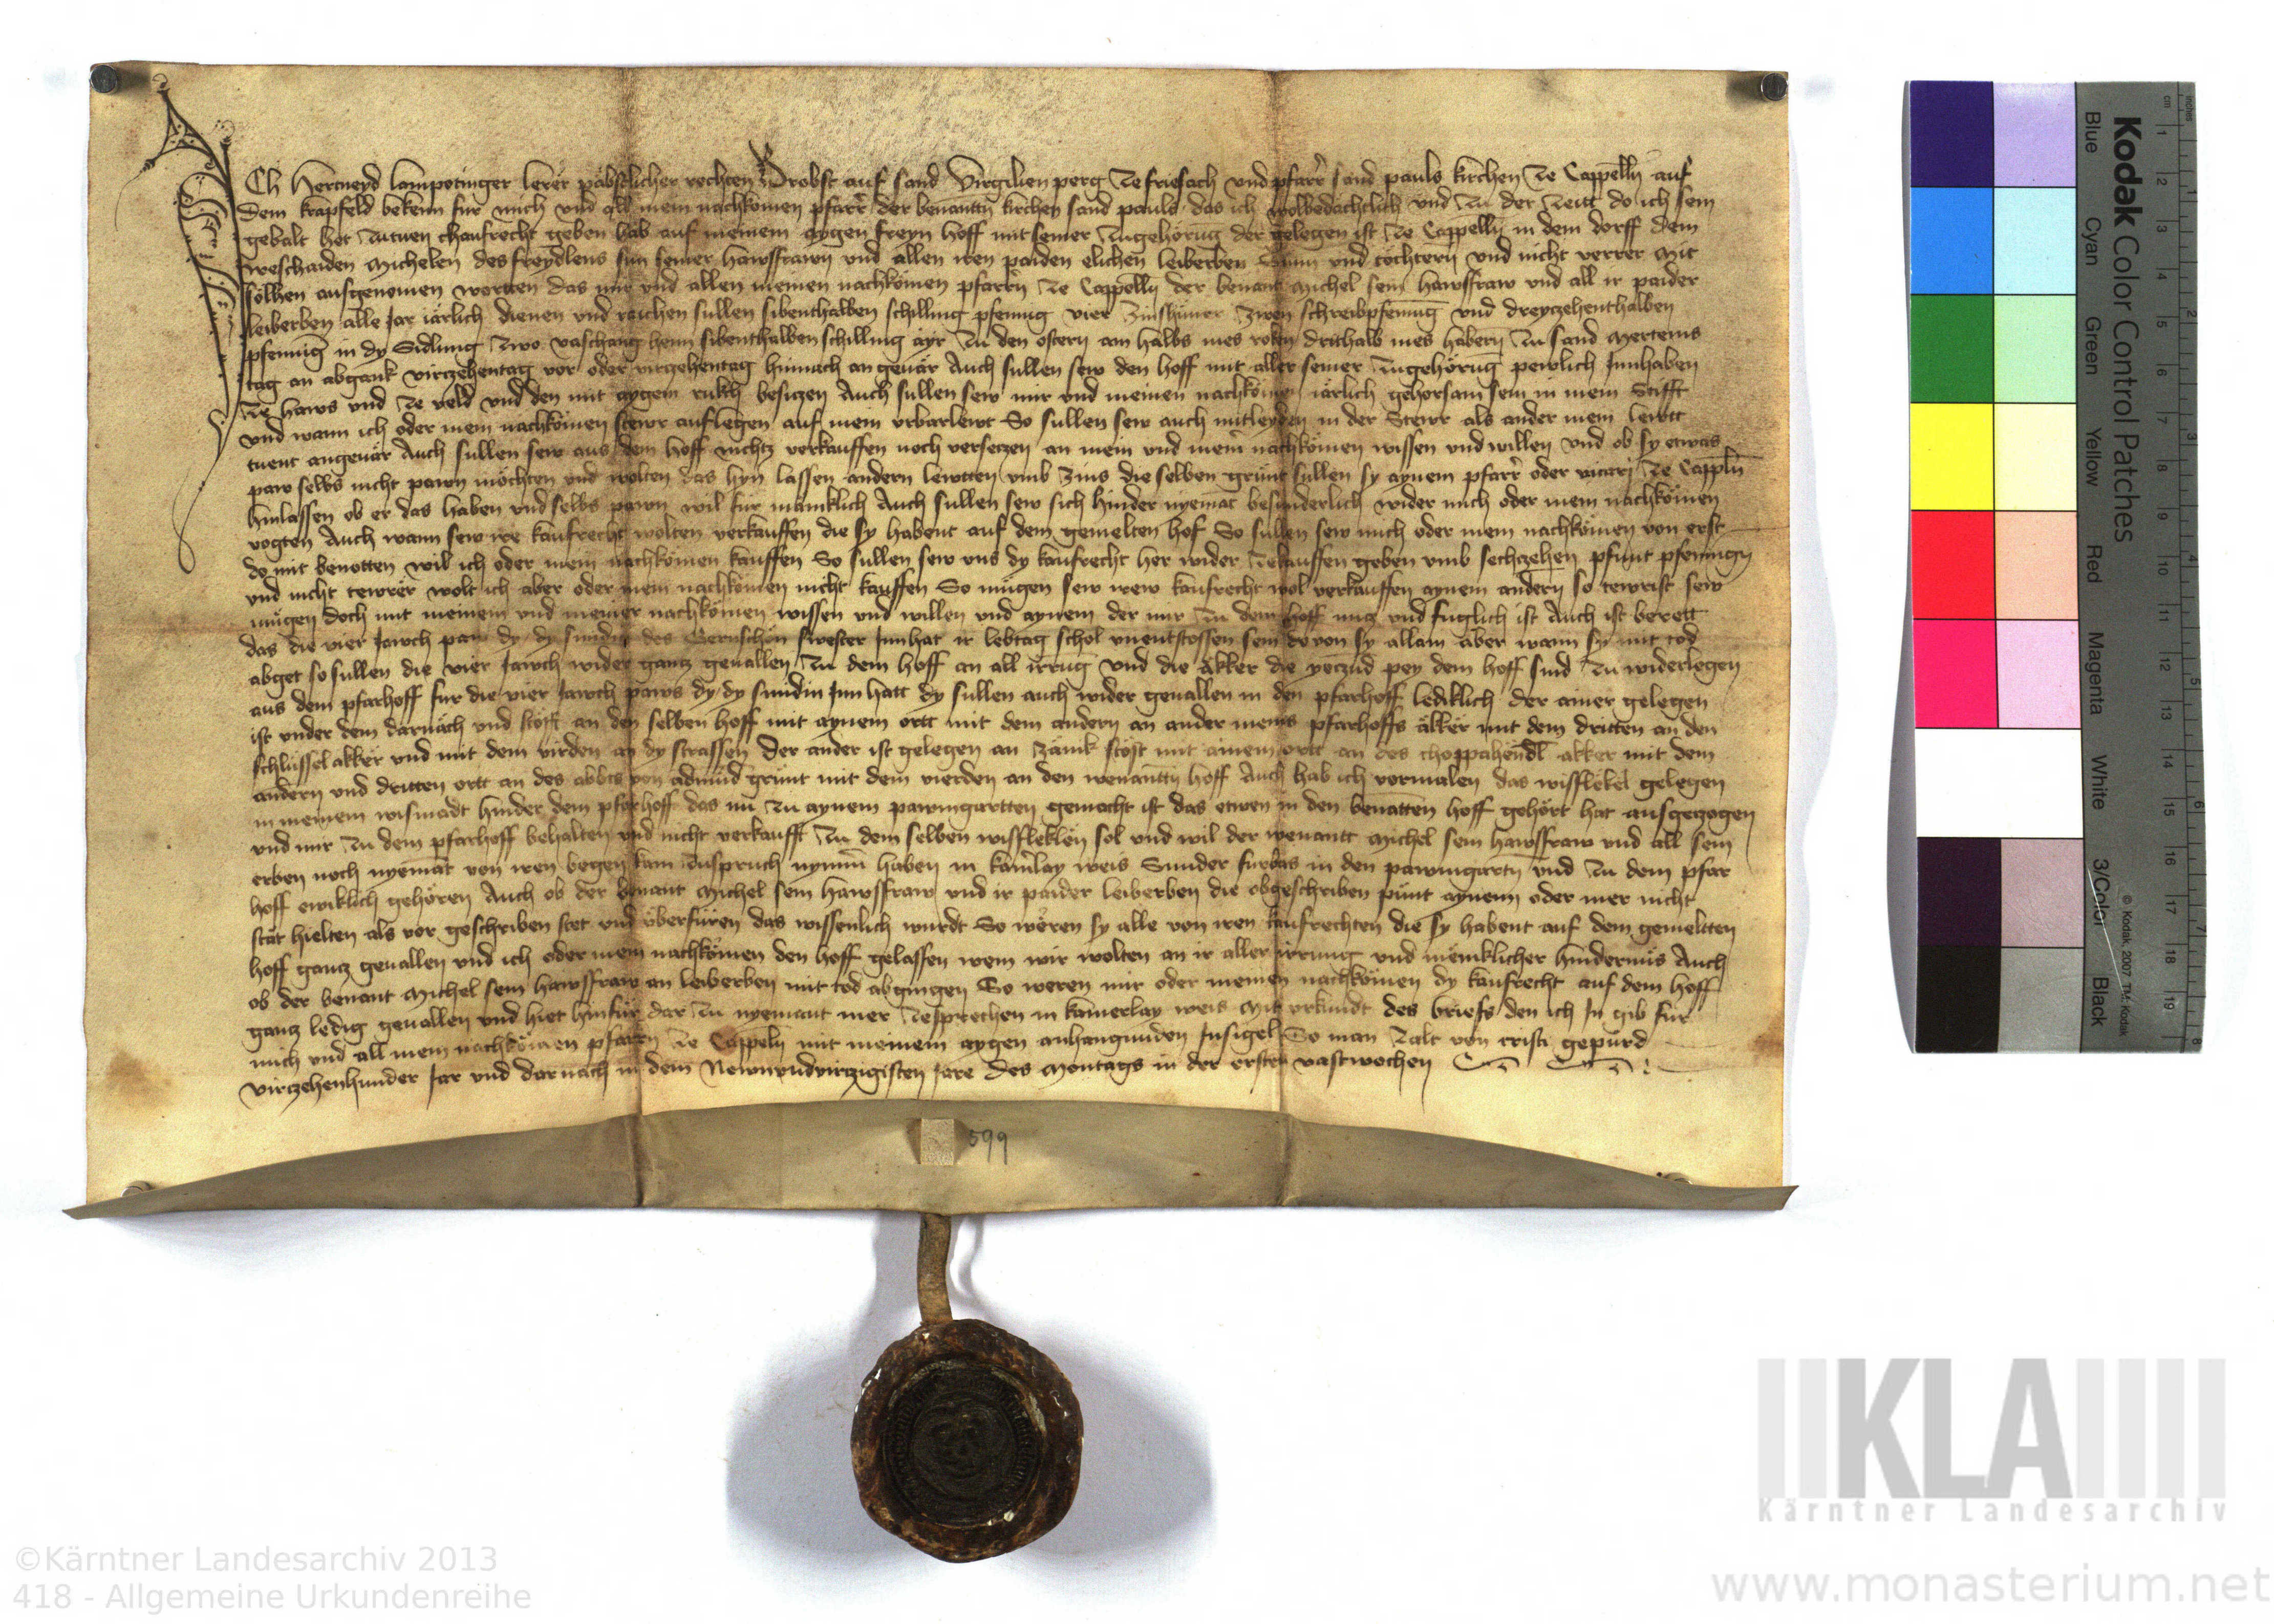 Ich Hertneyd lampotinger lerer päbstlicher rechten Probst auf sand Virgilien perg ze friesach vnd pfarr̄ sand pauls kirchen ze Cappelln̄ auf
dem krapfeld bekenn fur mich vnd all mein nachkomen pfarr̄ der benantt̄n kirchen sand pauls das ich wolbedächtlich vnd zu der zeitt do ich sein
gebalt het zutuen chaufrecht geben hab auf meinem aygen freyn hoff mit seiner zugehörūg der gelegen ist ze Cappelln̄ in dem dorff dem
weschaiden Michelen des freydlens sun seiner hawsffrawn̄ vnd allen iren paiden elichen leiberben Sünn vnd tochtern̄ vnd nicht verrer Mit
sölhen ausgenomen wortten das mir vnd allen meinen nachkömen pfarrn̄ ze Cappelln̄ der benant Michel sein hawsffraw vnd all ir paider
leiberben alle Jar iärlich dienen vnd raichen sullen sibenthalben schilling pfennig vier Zinshüner Zwen schreibpfennīg vnd dreyzehenthalben
pfennig in dy Sidlung zwo vaschang henn sibenthalben schilling ayr zu den ostern ain halbs mes roken drithalb mes habern̄ zu sand Merteins
tag an abgank virczehentag vor oder virczehentag hinnach an geuär Auch sullen sew den hoff mit aller seiner zugehörūg pewlich Innhaben
ze haws vnd ze veld vnd den mit aygem rukh besiczen Auch sullen sew mir vnd meinen nachkömen iärlich gehorsam sein in mein Stifft
vnd wann ich oder mein nachkömen stewr auflegen auf mein vrbarlewt So sullen sew auch mitleyden in der Stewr als ander mein lewtt
tuent angeuär Auch sullen sew aus dem hoff nichtz verkauffen noch versetzen an mein vnd meinr̄ nachkömen wissen vnd willen vnd ob sy etwas
paw selbs nicht pawn möchten vnd wolten das hyn lassen andern lewtten vmb Zins die selben grünt sullen sy aynem pfarr̄ oder vicari ze Cappln̄
hinlassen ob er das haben vnd selbs pawn wil für mäniklich Auch sullen sew sich hinder nyemāt besunderlich wider mich oder mein nachkömen
vogten Auch wann sew ire kaufrecht wolten verkauffen die sy habent auf dem gemelten hof So sullen sew mich oder mein nachkömen von erst
do mit benotten wil ich oder mein nachkömen kauffen So sullen sew vns dy kaufrecht her wider zekauffen geben vmb sechczehen pfunt pfennīgn̄
vnd nicht tewrer wolt ich aber oder mein nachkömen nicht kauffen So mügen sew irew kaufrecht wol verkauffen aynem andern̄ so tewrist sew
mügen doch mit meinem vnd meiner nachkömen wissen vnd willen vnd aynem der mir zu dem hoff nucz vnd fuglich ist Auch ist berett
das die vier Jawch paw dy dy smidin des Gernschön swester Innhat ir lebtag schol vnentstossen sein do von sy allain aber wann sy mit tod
abget so sullen die vier Jawch wider gantz geuallen zu dem hoff an all irrūg vnd die äkker die yeczūd pey dem hoff sind zu widerlegen
aus dem pfarhoff fur die vier Jawch paws dy dy smidin Inn hatt dy sullen auch wider geuallen in den pfarhoff lediklich der ainer gelegen
ist vnder dem darnäch vnd stöst an den selben hoff mit aynem ortt mit dem andern an ander meins pfarhoffs äkker mit dem dritten an den
schlüssel akker vnd mit dem virden an dy strassen der ander ist gelegen an Zänik stöst mit ainem ortt an des choppahendl akker mit dem
andern vnd dritten ortt an des abbts von admūd grünt mit dem vierden an den wenantt̄n hoff Auch hab ich vormalen das wisflekel gelegen
in meinem wismadt hinder dem pfarhoff das nu zu aynem pawmgartten gemacht ist das etwen in den benatten hoff gehört hat ausgeczogen
vnd mir zu dem pfarhoff behalten vnd nicht verkaufft zu dem selben wisfleklen sol vnd wil der wenantt Michel sein hawsffraw vnd all sein
erben noch nyemāt von iren wegen kain zuspruch nymm̄ haben in kainrlay weis Sunder furbas in den pawmgartn̄ vnd zu dem pfar
hoff ewiklich gehören Auch ob der benant Michel sein hawsffraw vnd ir paider leiberben die obgeschriben pünt aynenn oder mer nicht
stät hielten als vor geschriben stet vnd überfüren das wissenlich wurdt So wëren sy alle von iren kaufrechten die sy habent auf dem gemeltten
hoff gancz geuallen vnd ich oder mein nachkömen den hoff gelassen wem wir wolten an ir aller irrung vnd mëniklicher hindernüs Auch
ob der benant Michel sein hawsffraw an leiberben mit tod abgingen So weren mir oder meinen nachkömen dy kaufrecht auf dem hoff
gancz ledig geuallen vnd hiet hinfür dar zu nyemant mer zesprechen in kainerlay weis Mit vrkundt des briefs den ich In gib für
mich vnd all mein nachkömen pfarrn̄ ze Cappeln̄ mit meinem aygen anhangunden Insigel So man zalt von cristi gepürd
virczehenhunder Jar vnd dar nach in dem Newnvndvirczigisten Jare des Montags in der ersten vastwochen
599
Kodak Color Control Patches
Blue Cyan Green Yellow Red Magenta White 3/Color Black
© Kodak, 2007 TM: Kodak
cm 1 2 3 4 5 6 7 8 9 10 11 12 13 14 15 16 17 18 19
inches 1 2 3 4 5 6 7 8
KLA
Kärntner Landesarchiv
©Kärntner Landesarchiv 2013
418 - Allgemeine Urkundenreihe
www.monasterium.net